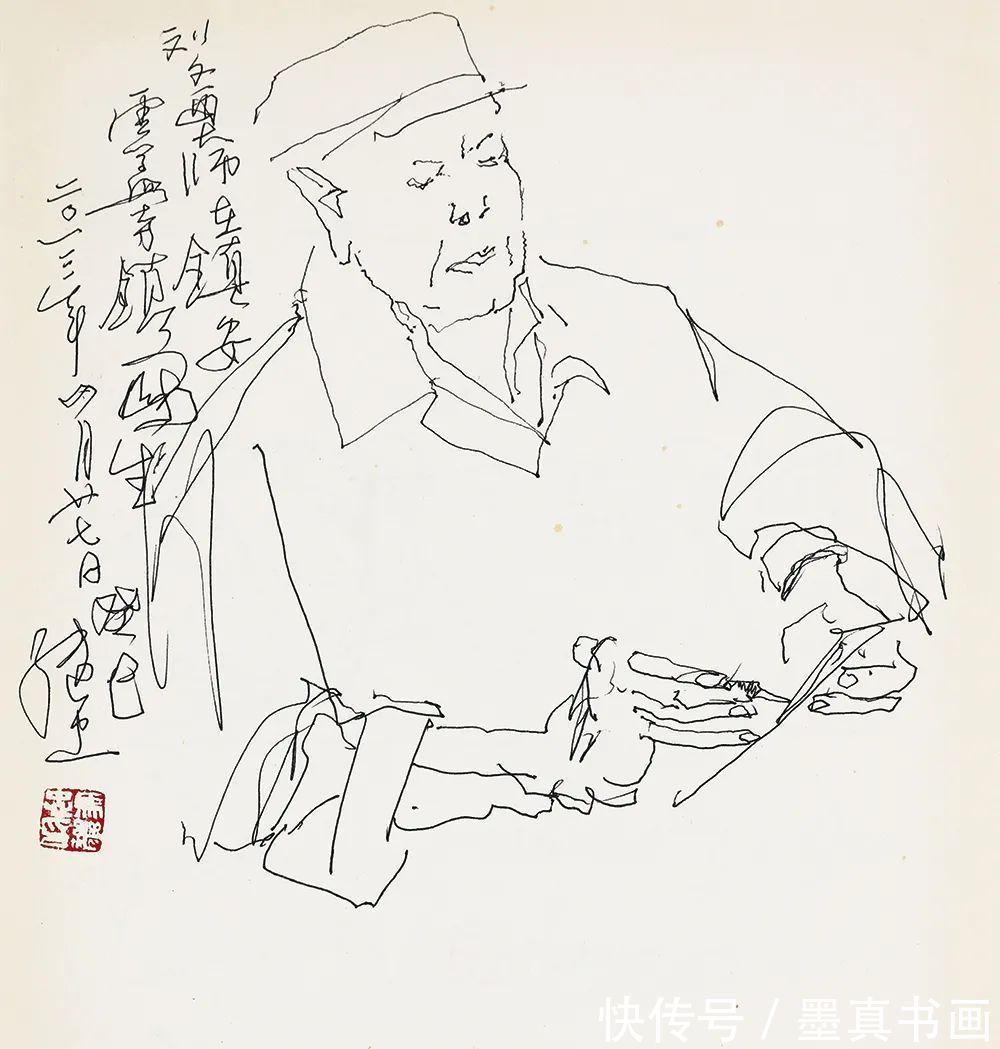 刘文西大师在鎮安
雲盖寺鎮写生
二〇一三年四月廿七日
快传号 / 墨真书画